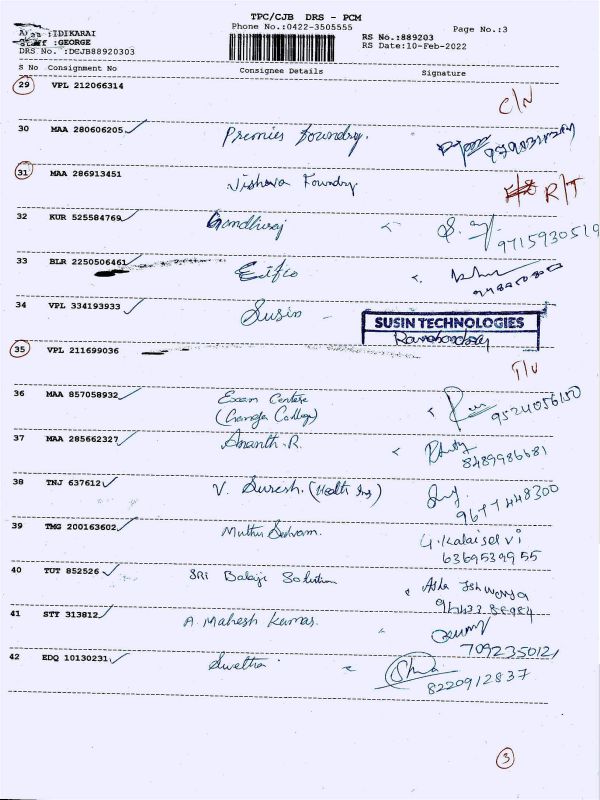 TPC/CJB DRS - PCM
Phone No.:0422-3505555
Page No.:3
Area :IDIKARAI
Staff :GEORGE
DRS No. :DCJB88920303
RS No.:889203
RS Date:10-Feb-2022
S No Consignment No Consignee Details Signature
29 VPL 212066314 C/N
30 MAA 280606205 Premier Foundry.
31 MAA 286913451 Vishava Foundry R/T
32 KUR 525584769 Gandhiraj
9715930519
33 BLR 2250506461
34 VPL 334193933 Susin -
SUSIN TECHNOLOGIES
35 VPL 211699036
36 MAA 857058932 Exam Centere
(Ganga College) 9524056150
37 MAA 285662327 Ananth.R.
8489986681
38 TNJ 637612 V. Suresh. (Health Ins)
9677448300
39 TMG 200163602 Muthu Selvam. G.Kalaiselvi
6369539955
40 TUT 852526 SRI Balaji Solution
41 STY 313812 A. Mahesh Kumar.
7092350121
42 EDQ 10130231 Swetha
8220912837
3